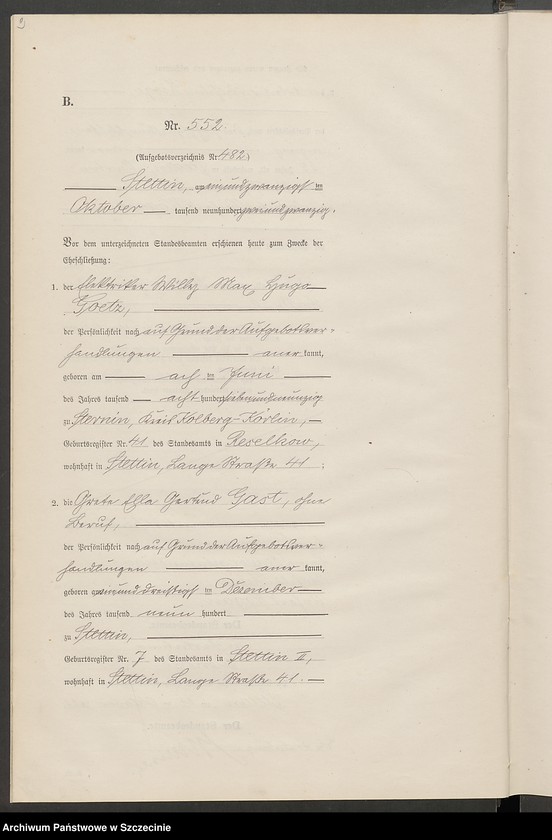 B.
Nr. 552.
(Aufgebotsverzeichnis Nr. 482.)
Stettin, am einundzwanzigsten
Oktober tausend neunhundert zweiundzwanzig.
Vor dem unterzeichneten Standesbeamten erschienen heute zum Zwecke der
Eheschließung:
1. der Elektriker Willy Max Hugo
Goetz,
der Persönlichkeit nach auf Grund der Aufgebotsver-
handlungen anerkannt,
geboren am acht ten Juni
des Jahres tausend acht hundert siebenundneunzig
zu Sternin, Kreis Kolberg-Körlin,
Geburtsregister Nr. 41 des Standesamts in Reselkow,
wohnhaft in Stettin, Lange Straße 41;
2. die Grete Ella Gertrud Gast, ohne
Beruf,
der Persönlichkeit nach auf Grund der Aufgebotsver-
handlungen anerkannt,
geboren am unddreißigsten Dezember
des Jahres tausend neun hundert
zu Stettin,
Geburtsregister Nr. 7 des Standesamts in Stettin II,
wohnhaft in Stettin, Lange Straße 41.
Archiwum Państwowe w Szczecinie